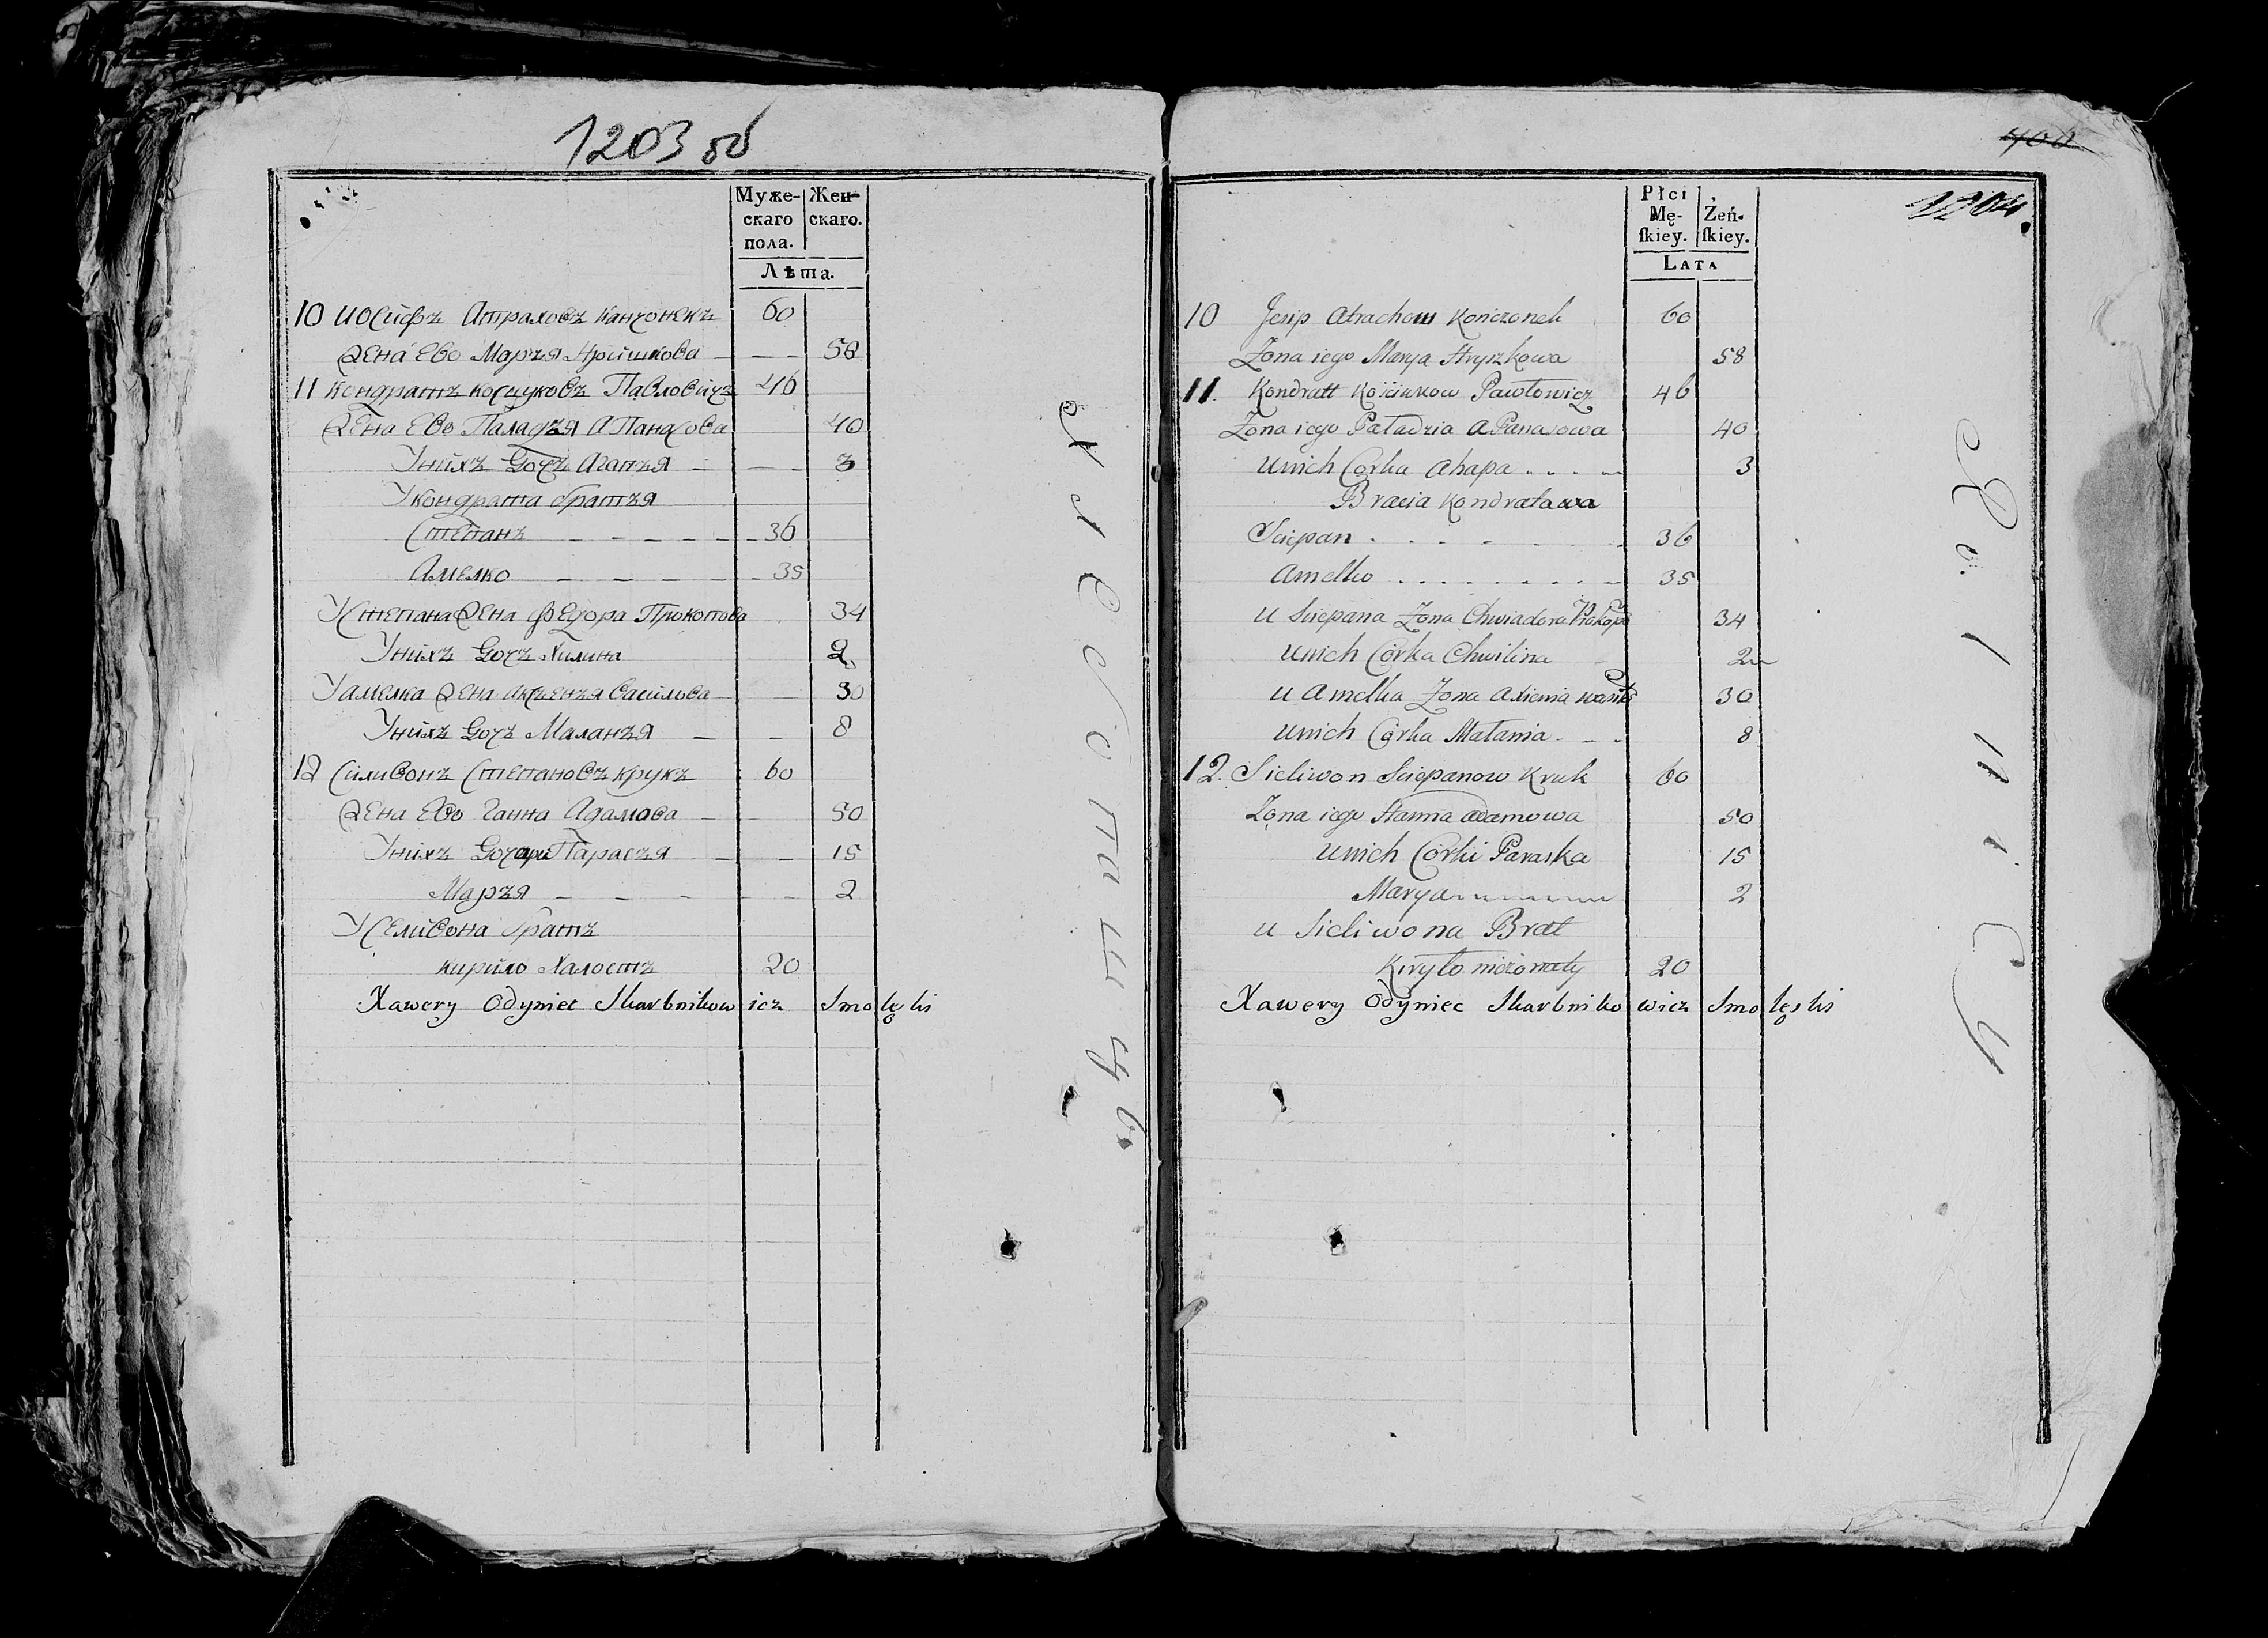 1203 об
Муже-
скаго
пола.
Жен-
скаго.
Лѣта.
10 Иосифъ Атраховъ Канчонекъ 60
Жена Ево Маръя Грышкова 58
11 Кондратъ Косцуковъ Павловичъ 46
Жена Ево Паладзя Апанасова 40
Унихъ Дочъ Агапъя 3
Укондрата братъя
Степанъ 36
Амелко 35
Устепана Жена Федора Прокопова 34
Унихъ Дочъ Хилина 2
Уамелка Жена Акъсенъя Васильова 30
Унихъ Дочъ Маланъя 8
12 Силивонъ Степановъ Крукъ 60
Жена Ево Ганна Адамова 50
Унихъ Дочери Парасъя 15
Маръя 2
Уселивона братъ
Кирило Халостъ 20
Xawery Odyniec Skarbnikowicz Smolęski
400
1204.
Płci
Mę-
ſkiey.
Żeń-
ſkiey.
LATA
10 Jesip Atrachow Kończonek 60
Zona iego Marya Hryszkowa 58
11. Kondratt Kościukow Pawłowicz 46
Zona iego Paładzia Apanasowa 40
unich Corka Ahapa 3
Bracia Kondratawa
Sciepan 36
Amelko 35
u Sciepana Zona Chwiadora Prokopo 34
unich Córka Chwilina 2
u Amelka Zona Axienia Wasilo 30
unich Córka Małania 8
12. Sieliwon Sciepanow Kruk 60
Zona iego Hanna adamowa 50
unich Córki Paraska 15
Marya 2
u Sieliwona Brat
Kiryło nieżonaty 20
Xawery Odyniec Skarbnikowicz Smolęski